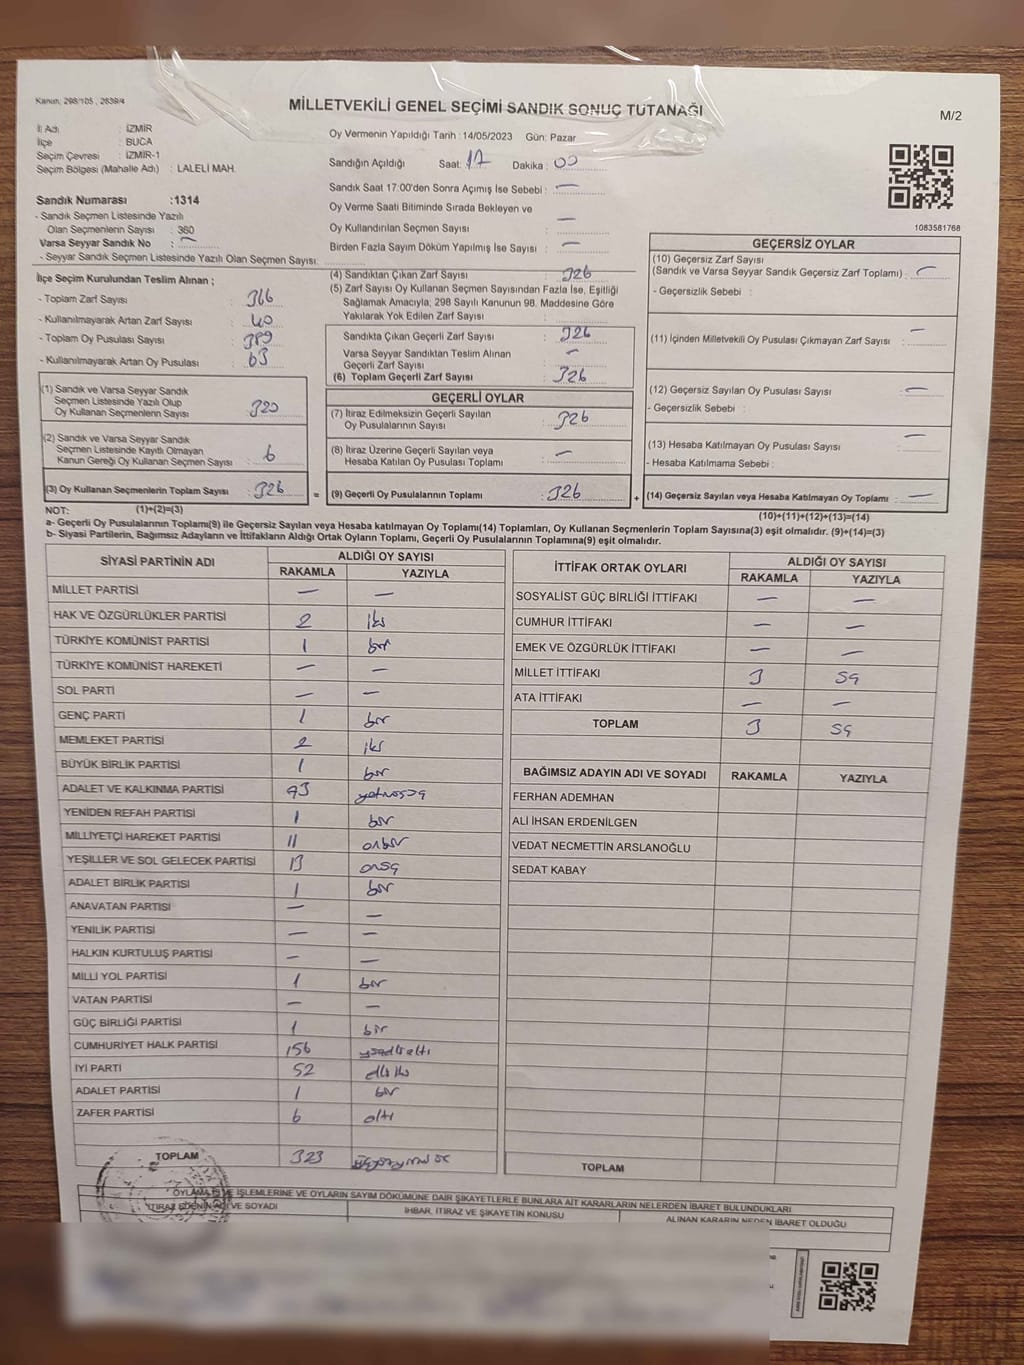 Kanun, 298/105 , 2839/4
MİLLETVEKİLİ GENEL SEÇİMİ SANDIK SONUÇ TUTANAĞI
M/2
İl Adı : İZMİR
İlçe : BUCA
Seçim Çevresi : İZMİR-1
Seçim Bölgesi (Mahalle Adı) : LALELİ MAH.
Oy Vermenin Yapıldığı Tarih : 14/05/2023 Gün: Pazar
Sandığın Açıldığı Saat: 17 Dakika : 00
Sandık Saat 17:00'den Sonra Açımış İse Sebebi : —
Oy Verme Saati Bitiminde Sırada Bekleyen ve
Oy Kullandırılan Seçmen Sayısı : —
Birden Fazla Sayım Döküm Yapılmış İse Sayısı : —
1083581768
Sandık Numarası :1314
- Sandık Seçmen Listesinde Yazılı
Olan Seçmenlerin Sayısı : 360
Varsa Seyyar Sandık No : —
- Seyyar Sandık Seçmen Listesinde Yazılı Olan Seçmen Sayısı:
İlçe Seçim Kurulundan Teslim Alınan ;
- Toplam Zarf Sayısı : 366
- Kullanılmayarak Artan Zarf Sayısı : 40
- Toplam Oy Pusulası Sayısı : 389
- Kullanılmayarak Artan Oy Pusulası : 63
(1) Sandık ve Varsa Seyyar Sandık
Seçmen Listesinde Yazılı Olup
Oy Kullanan Seçmenlerin Sayısı : 320
(2) Sandık ve Varsa Seyyar Sandık
Seçmen Listesinde Kayıtlı Olmayan
Kanun Gereği Oy Kullanan Seçmen Sayısı : 6
(3) Oy Kullanan Seçmenlerin Toplam Sayısı : 326
(4) Sandıktan Çıkan Zarf Sayısı : 326
(5) Zarf Sayısı Oy Kullanan Seçmen Sayısından Fazla İse, Eşitliği
Sağlamak Amacıyla; 298 Sayılı Kanunun 98. Maddesine Göre
Yakılarak Yok Edilen Zarf Sayısı :
Sandıkta Çıkan Geçerli Zarf Sayısı : 326
Varsa Seyyar Sandıktan Teslim Alınan
Geçerli Zarf Sayısı : —
(6) Toplam Geçerli Zarf Sayısı : 326
GEÇERLİ OYLAR
(7) İtiraz Edilmeksizin Geçerli Sayılan
Oy Pusulalarının Sayısı : 326
(8) İtiraz Üzerine Geçerli Sayılan veya
Hesaba Katılan Oy Pusulası Toplamı : —
= (9) Geçerli Oy Pusulalarının Toplamı : 326 +
GEÇERSİZ OYLAR
(10) Geçersiz Zarf Sayısı
(Sandık ve Varsa Seyyar Sandık Geçersiz Zarf Toplamı) : —
- Geçersizlik Sebebi :
(11) İçinden Milletvekili Oy Pusulası Çıkmayan Zarf Sayısı : —
(12) Geçersiz Sayılan Oy Pusulası Sayısı : —
- Geçersizlik Sebebi :
(13) Hesaba Katılmayan Oy Pusulası Sayısı : —
- Hesaba Katılmama Sebebi :
(14) Geçersiz Sayılan veya Hesaba Katılmayan Oy Toplamı : —
NOT: (1)+(2)=(3)
(10)+(11)+(12)+(13)=(14)
a- Geçerli Oy Pusulalarının Toplamı(9) ile Geçersiz Sayılan veya Hesaba katılmayan Oy Toplamı(14) Toplamları, Oy Kullanan Seçmenlerin Toplam Sayısına(3) eşit olmalıdır. (9)+(14)=(3)
b- Siyasi Partilerin, Bağımsız Adayların ve İttifakların Aldığı Ortak Oyların Toplamı, Geçerli Oy Pusulalarının Toplamına(9) eşit olmalıdır.
SİYASİ PARTİNİN ADI ALDIĞI OY SAYISI
RAKAMLA YAZIYLA
MİLLET PARTİSİ — —
HAK VE ÖZGÜRLÜKLER PARTİSİ 2 iki
TÜRKİYE KOMÜNİST PARTİSİ 1 bir
TÜRKİYE KOMÜNİST HAREKETİ — —
SOL PARTİ — —
GENÇ PARTİ 1 bir
MEMLEKET PARTİSİ 2 iki
BÜYÜK BİRLİK PARTİSİ 1 bir
ADALET VE KALKINMA PARTİSİ 73 yetmişüç
YENİDEN REFAH PARTİSİ 1 bir
MİLLİYETÇİ HAREKET PARTİSİ 11 onbir
YEŞİLLER VE SOL GELECEK PARTİSİ 13 onüç
ADALET BİRLİK PARTİSİ 1 bir
ANAVATAN PARTİSİ — —
YENİLİK PARTİSİ — —
HALKIN KURTULUŞ PARTİSİ — —
MİLLİ YOL PARTİSİ 1 bir
VATAN PARTİSİ — —
GÜÇ BİRLİĞİ PARTİSİ 1 bir
CUMHURİYET HALK PARTİSİ 156 yüzellialtı
İYİ PARTİ 52 elliiki
ADALET PARTİSİ 1 bir
ZAFER PARTİSİ 6 altı
TOPLAM 323 üçyüzyirmiüç
İTTİFAK ORTAK OYLARI ALDIĞI OY SAYISI
RAKAMLA YAZIYLA
SOSYALİST GÜÇ BİRLİĞİ İTTİFAKI — —
CUMHUR İTTİFAKI — —
EMEK VE ÖZGÜRLÜK İTTİFAKI — —
MİLLET İTTİFAKI 3 üç
ATA İTTİFAKI — —
TOPLAM 3 üç
BAĞIMSIZ ADAYIN ADI VE SOYADI RAKAMLA YAZIYLA
FERHAN ADEMHAN
ALİ İHSAN ERDENİLGEN
VEDAT NECMETTİN ARSLANOĞLU
SEDAT KABAY
TOPLAM
OYLAMA İŞ VE İŞLEMLERİNE VE OYLARIN SAYIM DÖKÜMÜNE DAİR ŞİKAYETLERLE BUNLARA AİT KARARLARIN NELERDEN İBARET BULUNDUKLARI
İTİRAZ EDENİN ADI VE SOYADI İHBAR, İTİRAZ VE ŞİKAYETİN KONUSU ALINAN KARARIN NEDEN İBARET OLDUĞU